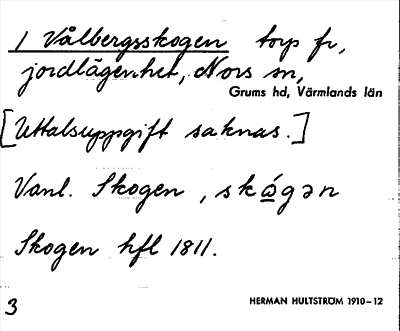 1 Vålbergsskogen torp fr,
jordlägenhet, Nors sn,
Grums hd, Värmlands län
[Uttalsuppgift saknas.]
Vanl. Skogen, skógən
Skogen hfl 1811.
3
HERMAN HULTSTRÖM 1910–12